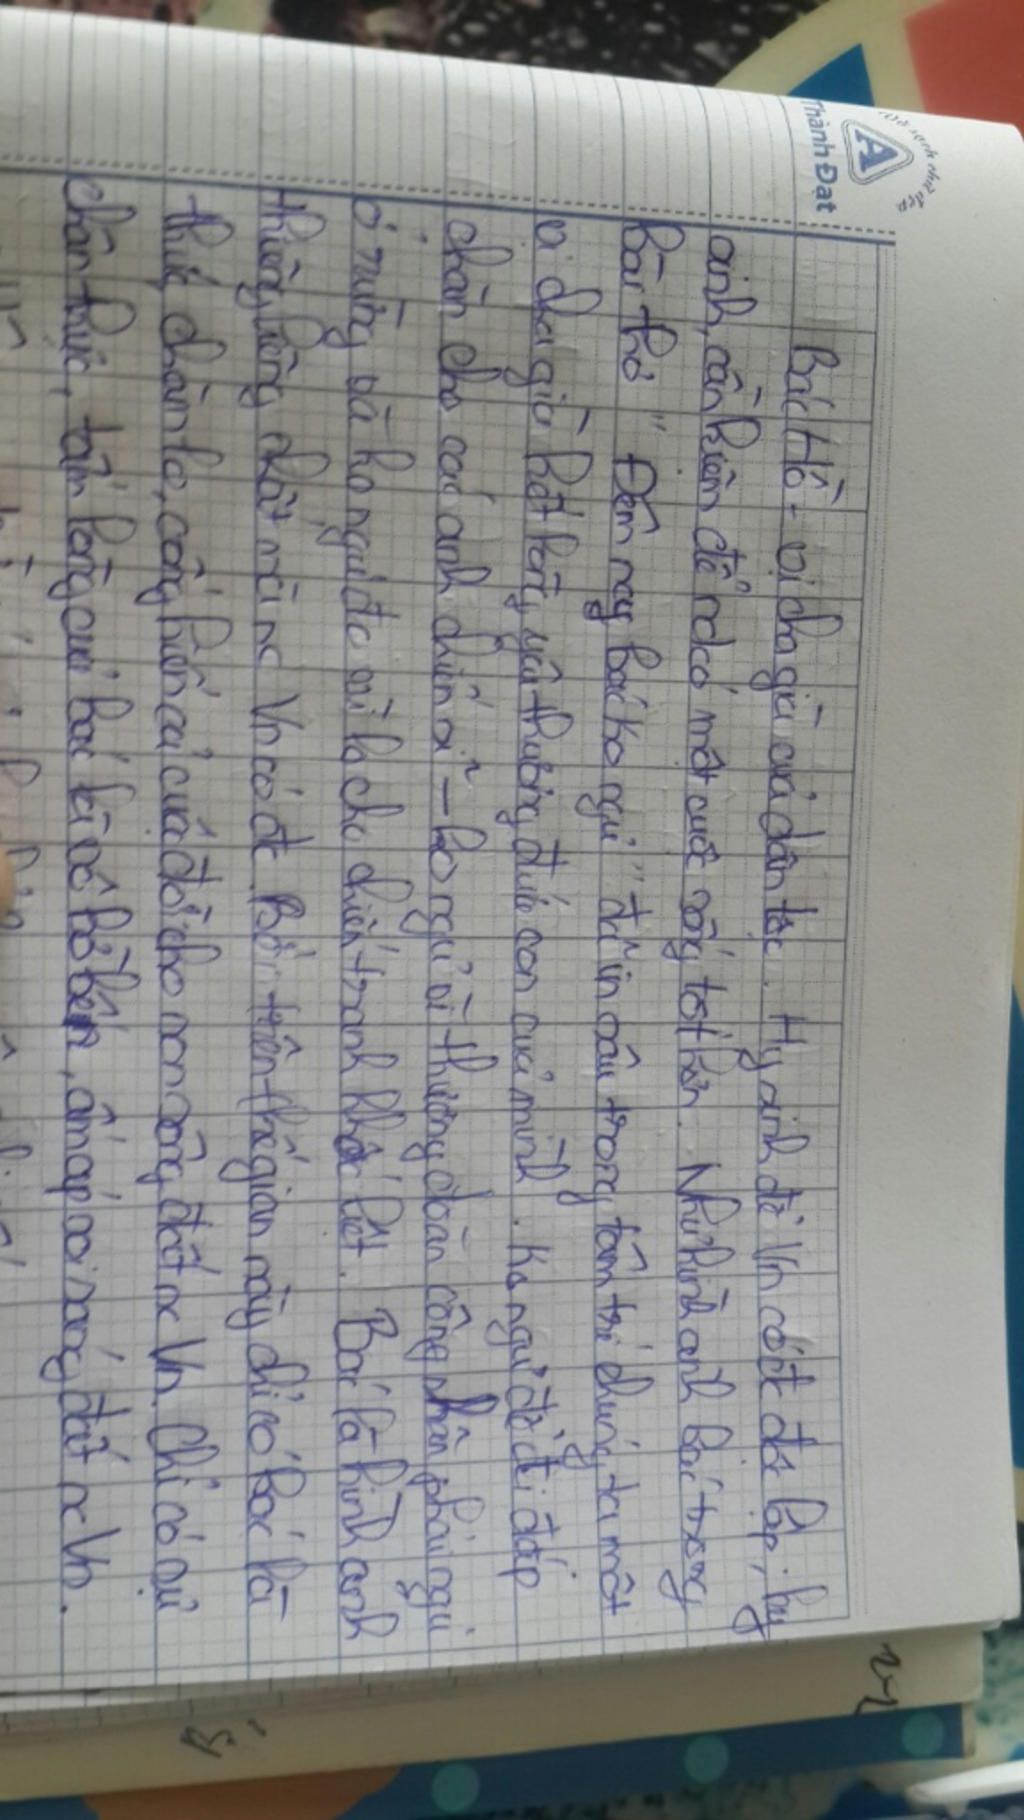 Vở sạch chữ đẹp
A
Thành Đạt
Bác Hồ - vị cha già của dân tộc. Hy sinh để Vn có đc độc lập, hy
sinh, cần kiệm để nd có một cuộc sống tốt hơn. Như hình ảnh bác trong
bài thơ " Đêm nay bác ko ngủ " đã in sâu trong tâm trí chúng ta một
vị cha già hết lòng yêu thương đứa con của mình. Ko ngủ để đi đắp
chăn cho các anh chiến sĩ - ko ngủ vì thương đoàn công nhân phải ngủ
ở rừng và ko ngủ đc vì lo cho chiến tranh khốc liệt. Bác là hình ảnh
thiêng liêng nhất mà nc Vn có đc. Bởi trên thế gian này chỉ có bác là
thức chăm lo, cống hiến cả cuộc đời cho non sông, đất nc Vn. Chỉ có sự
chân thực, tấm lòng của bác là bến, âm áp soi sáng đất nc Vn.